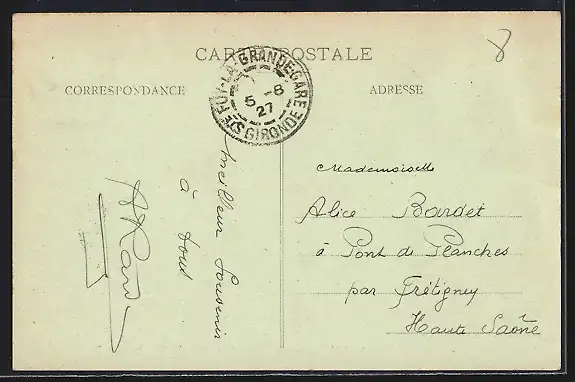 CARTE POSTALE
CORRESPONDANCE
ADRESSE
STE FOY-LA-GRANDE-GARE
5 -8
27
GIRONDE
8
meilleur Souvenir
à tous
Mademoiselle
Alice Bardet
à Pont de Planches
par Frétigney
Haute Saône